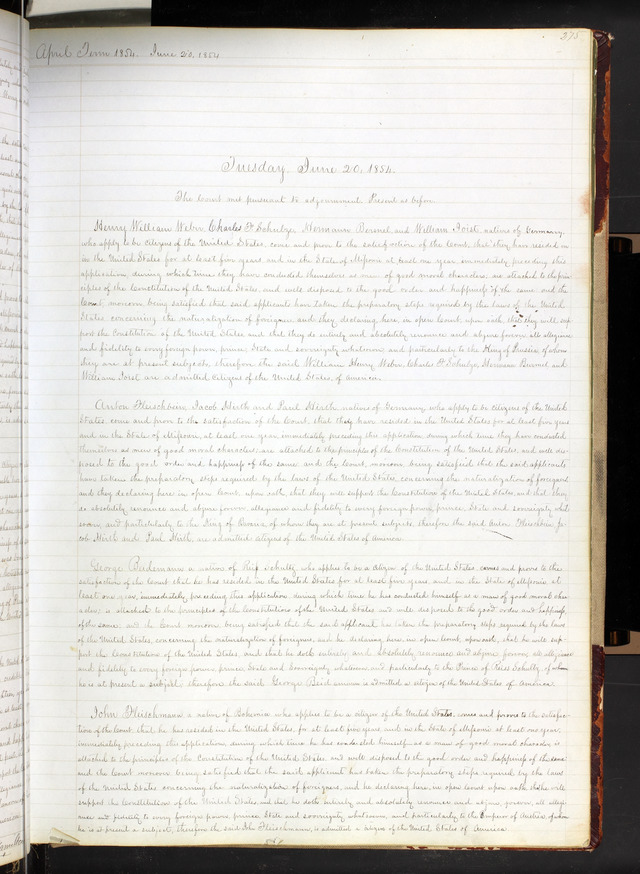 April Term 1854. June 20, 1854
375
Tuesday June 20, 1854.
The Court met pursuant to adjournment. Present as before
Henry William Weber, Charles F Schulze, Hermann Bormel, and William Joist, natives of Germany,
who apply to be citizens of the United States, come and prove to the satisfaction of the Court, that they have resided in
in the United States for at least five years, and in the State of Missouri at least one year, immediately preceding this
application, during which time they have conducted themselves as men of good moral character, are attached to the prin
ciples of the Constitution of the United States, and well disposed to the good order and happiness of the same and the
Court, moreover being satisfied that said applicants have taken the preparatory steps required by the laws of the United
States concerning the naturalization of foreigners and they declaring here, in open Court, upon oath, that they will sup
port the Constitution of the United States, and that they do entirely and absolutely renounce and abjure forever all allegiance
and fidelity to every foreign power, prince State and sovereignty whatsoever and particularly to the King of Prussia of whom
they are at present subjects, therefore the said William Henry Weber, Charles F Schulze, Hermann Bormel and
William Joist are admitted citizens of the United States, of America.
Anton Fleischbein, Jacob Hirth and Paul Hirth, natives of Germany, who apply to be citizens of the United
States, come and prove to the satisfaction of the Court, that they have resided in the United States for at least five years
and in the State of Missouri, at least one year immediately preceding this application, during which time they have conducted
themselves as men of good moral character; are attached to the principles of the Constitution of the United States, and well dis
posed to the good order and happiness of the same and the Court, moreover being satisfied that the said applicants
have taken the preparatory steps required by the laws of the United States, concerning the naturalization of foreigners
and they declaring here in open Court, upon oath, that they will support the Constitution of the United States, and that they
do absolutely renounce and abjure forever, allegiance and fidelity to every foreign power, prince, State and sovereignty what
soever, and particularly to the King of Bavaria of whom they are at present subjects, therefore the said Anton Fleischbein, Ja
cob Hirth and Paul Hirth, are admitted citizens of the United States of America.
George Biedemann a native of Reip Schultz, who applies to be a citizen of the United States, comes and proves to the
satisfaction of the Court that he has resided in the United States for at least five years, and in the State of Missouri at
least one year, immediately preceding this application during which time he has conducted himself as a man of good moral cha
racter; is attached to the principles of the Constitution of the United States and well disposed to the good order and happiness
of the same and the Court moreover being satisfied that the said applicant has taken the preparatory steps required by the laws
of the United States, concerning the naturalization of foreigners, and he declaring here, in open Court, upon oath, that he will sup
port the Constitution of the United States, and that he doth entirely and absolutely renounce and abjure forever, all allegiance
and fidelity to every foreign power, prince, State and Sovereignty whatsoever, and particularly to the Prince of Reiss Schultz, of whom
he is at present a subject, therefore the said George Biedemann is admitted a citizen of the United States of America.
John Fleischmann, a native of Bohemia who applies to be a citizen of the United States, comes and proves to the satisfac
tion of the Court that he has resided in the United States, for at least five years, and in the State of Missouri at least one year,
immediately preceding this application, during which time he has conducted himself as a man of good moral character, is
attached to the principles of the Constitution of the United States and well disposed to the good order and happiness of the same
and the Court moreover being satisfied that the said applicant has taken the preparatory steps required by the laws
of the United States concerning the naturalization of foreigners, and he declaring here, in open Court upon oath, that he will
support the Constitution of the United States, and that he doth entirely and absolutely renounce and abjure, forever, all allegi
ance and fidelity to every foreign power prince State and sovereignty whatsoever, and particularly to the Emperor of Austria of whom
he is at present a subject, therefore the said John Fleischmann, is admitted a citizen of the United States of America